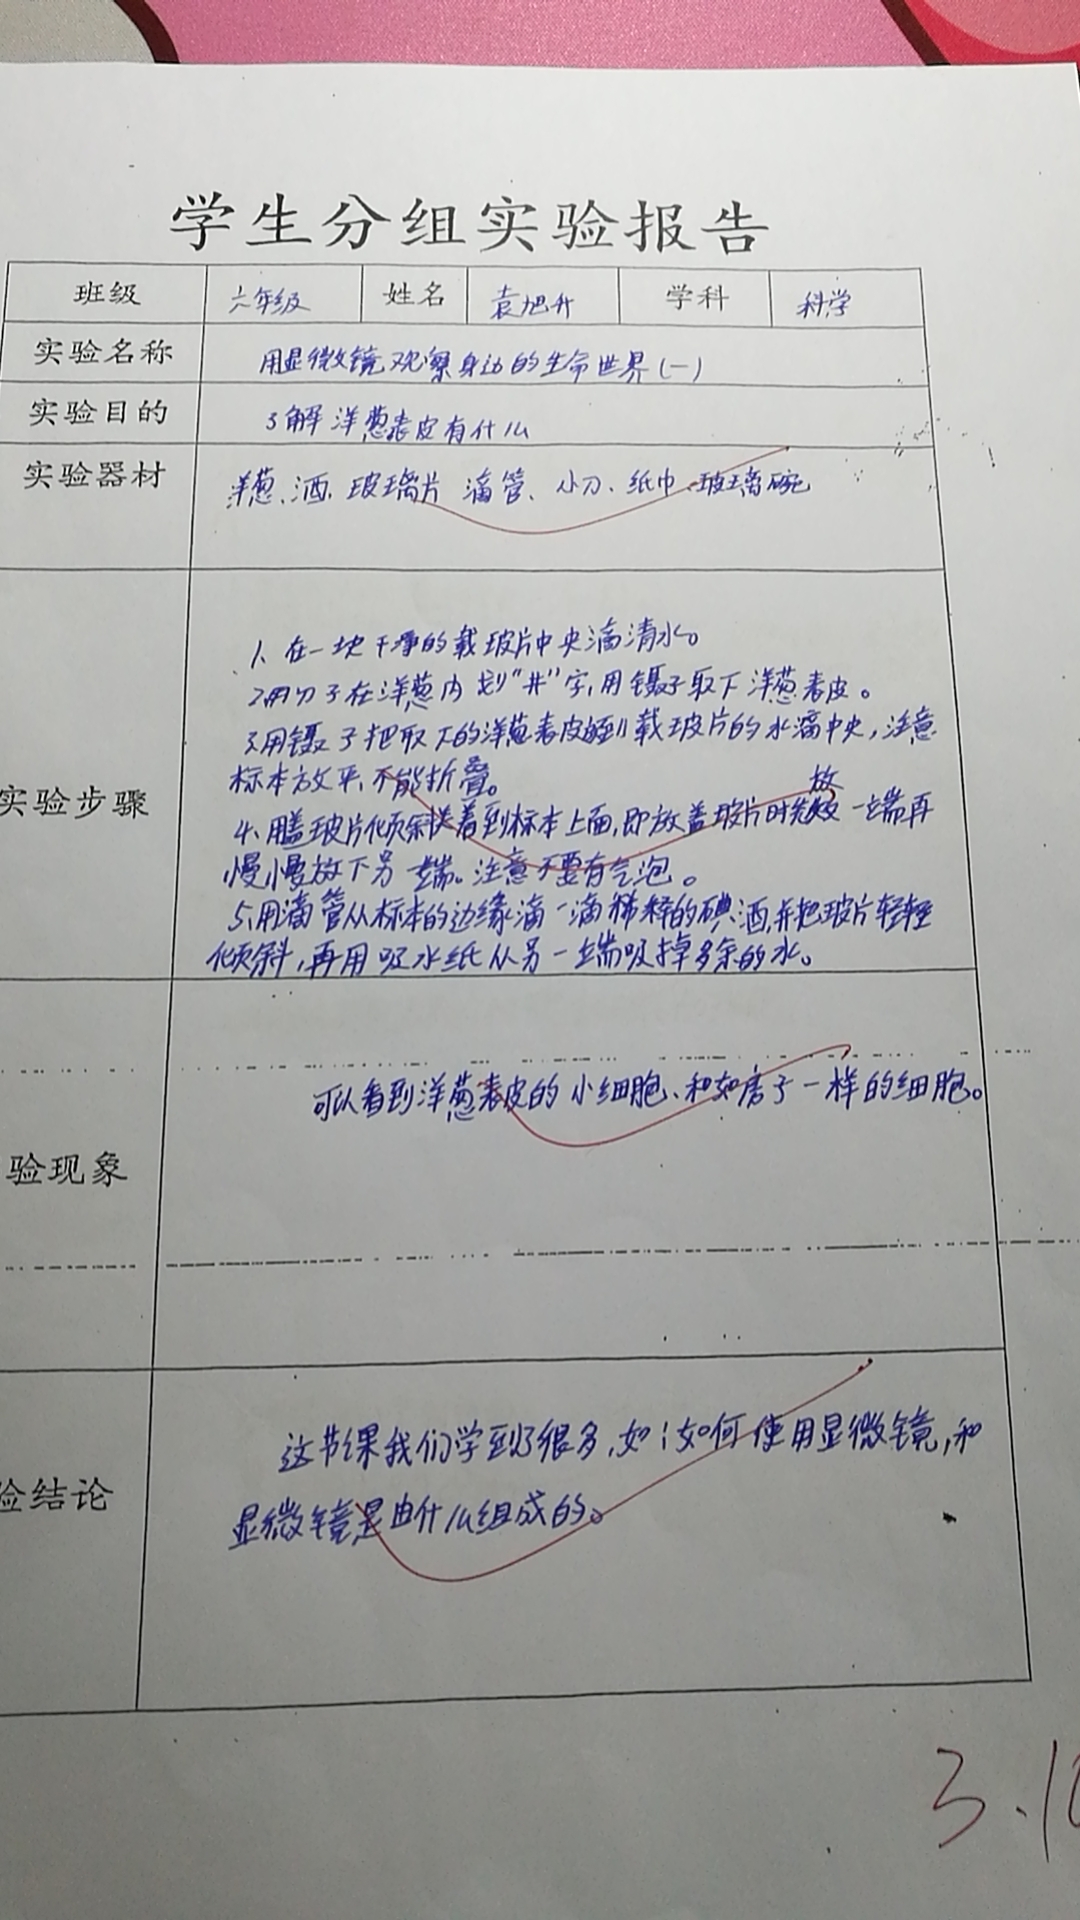 学生分组实验报告
班级 六年级 姓名 袁旭升 学科 科学
实验名称 用显微镜观察身边的生命世界(一)
实验目的 了解洋葱表皮有什么
实验器材 洋葱、酒、玻璃片 滴管、小刀、纸巾、玻璃碗
1、在一块干净的载玻片中央滴清水。
2、用刀子在洋葱内划"井"字,用镊子取下洋葱表皮。
3、用镊子把取下的洋葱表皮到载玻片的水滴中央,注意
标本放平,不能折叠。
放
实验步骤
4、用盖玻片倾斜着到标本上面,即放盖玻片时先一端再
慢慢放下另一端。注意不要有气泡。
5、用滴管从标本的边缘滴一滴稀释的碘酒,并把玻片轻轻
倾斜,再用吸水纸从另一端吸掉多余的水。
可以看到洋葱表皮的小细胞、和如房子一样的细胞。
验现象
这节课我们学到了很多,如:如何使用显微镜,和
验结论
显微镜是由什么组成的。
3.10